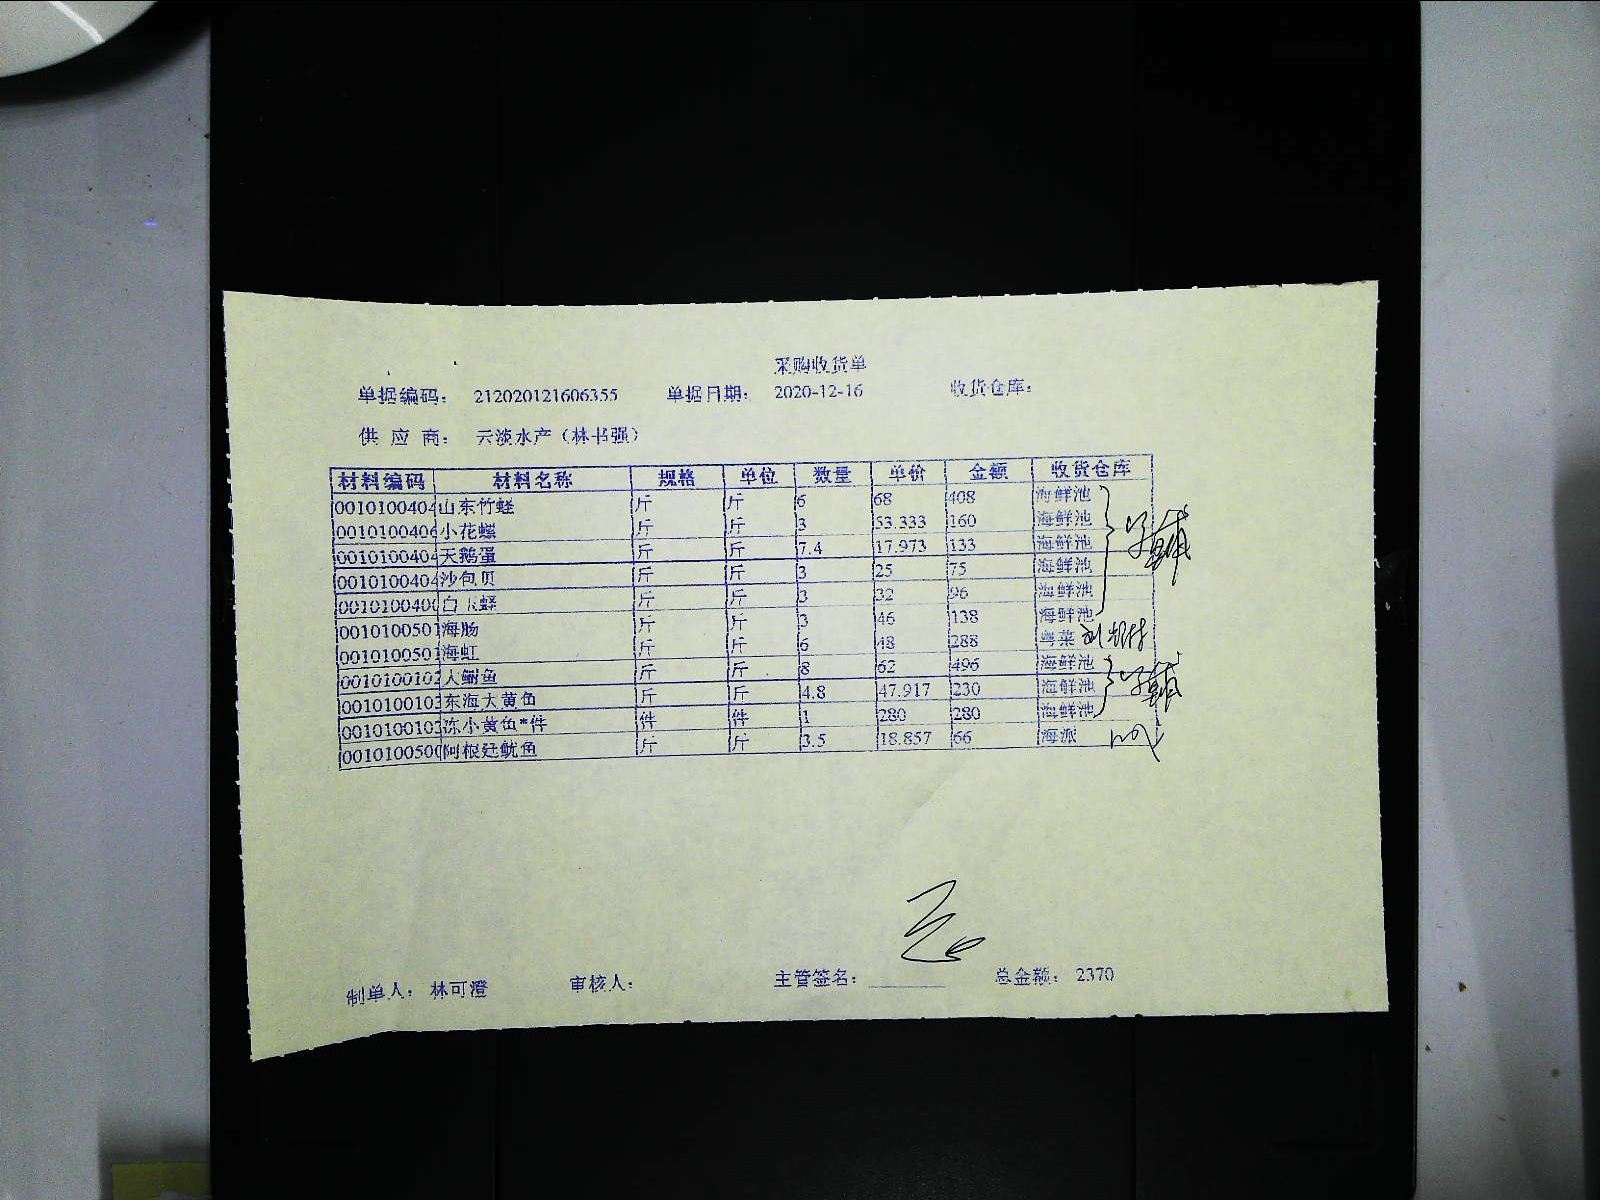 采购收货单
单据编码： 212020121606355 单据日期： 2020-12-16 收货仓库：
供 应 商： 云淡水产（林书强）
材料编码 材料名称 规格 单位 数量 单价 金额 收货仓库
0010100404 山东竹蛏 斤 斤 6 68 408 海鲜池
0010100406 小花螺 斤 斤 3 53.333 160 海鲜池
0010100404 天鹅蛋 斤 斤 7.4 17.973 133 海鲜池
0010100404 沙包贝 斤 斤 3 25 75 海鲜池
0010100400 白玉蛏 斤 斤 3 32 96 海鲜池
0010100501 海肠 斤 斤 3 46 138 海鲜池
0010100501 海虹 斤 斤 6 48 288 粤菜
0010100102 斤 斤 8 62 496 海鲜池
0010100103 东海大黄鱼 斤 斤 4.8 47.917 230 海鲜池
0010100102 冻小黄鱼*件 件 件 1 280 280 海鲜池
0010100500 阿根廷鱿鱼 斤 斤 3.5 18.857 66 海派
制单人： 林可澄 审核人： 主管签名： 总金额： 2370